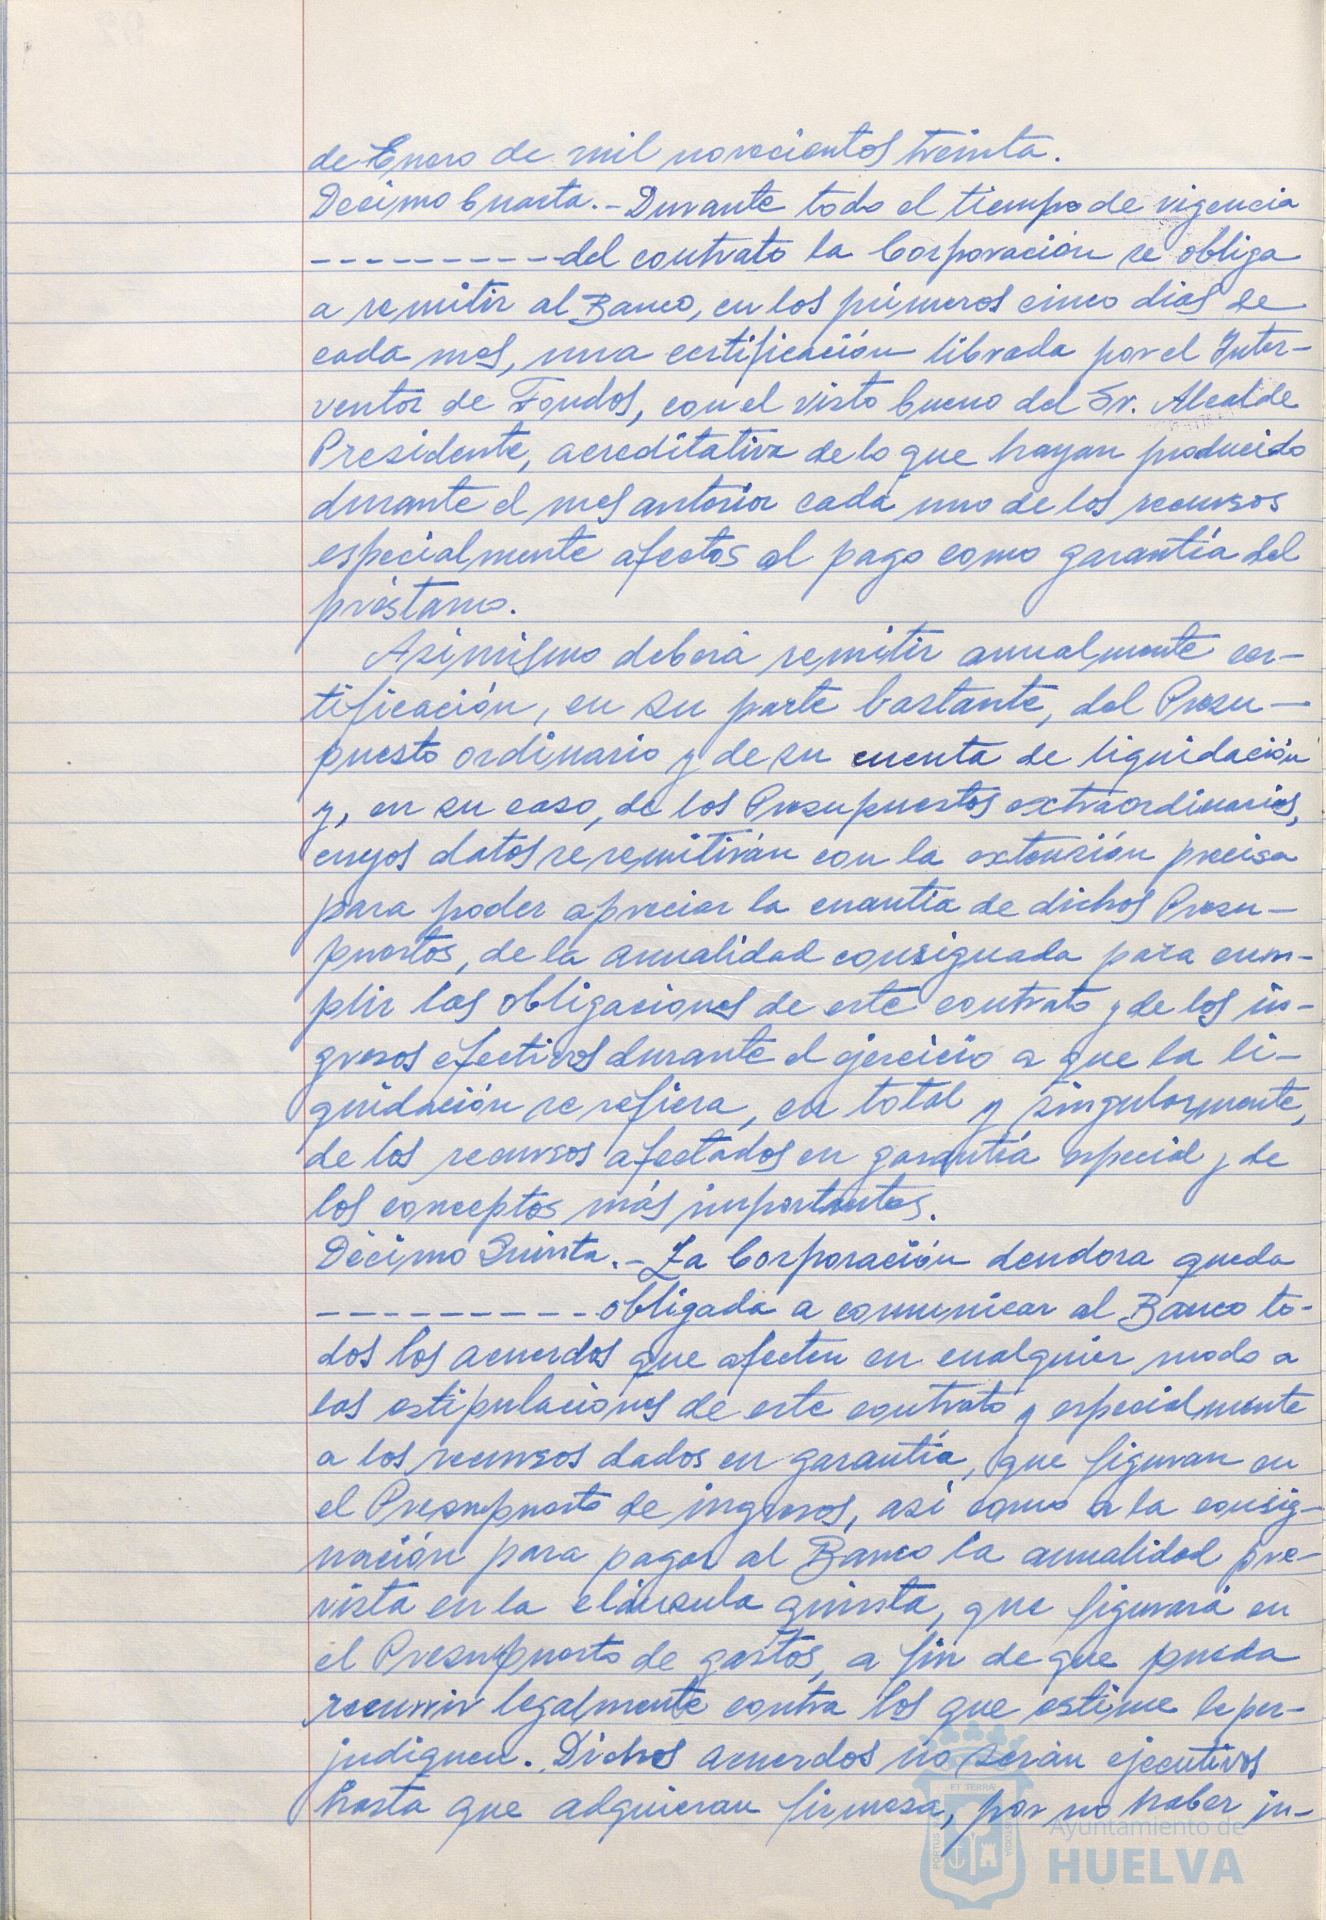 de Enero de mil novecientos treinta.
Décimo Cuarta.- Durante todo el tiempo de vigencia
---------del contrato la Corporación se obliga
a remitir al Banco, en los primeros cinco dias de
cada mes, una certificación librada por el Inter-
ventor de Fondos, con el visto bueno del Sr. Alcalde
Presidente, acreditativa de lo que hayan producido
durante el mes anterior cada uno de los recursos
especialmente afectos al pago como garantía del
préstamo.
Asimismo deberá remitir anualmente cer-
tificación, en su parte bastante, del Presu-
puesto ordinario y de su cuenta de liquidación
y, en su caso, de los Presupuestos extraordinarios,
cuyos datos se remitirán con la extensión precisa
para poder apreciar la cuantía de dichos Presu-
puestos, de la anualidad consignada para cum-
plir las obligaciones de este contrato y de los in-
gresos efectivos durante el ejercicio a que la li-
quidación se refiera, en total y singularmente,
de los recursos afectados en garantía especial y de
los conceptos más importantes.
Décimo Quinta.- La Corporación deudora queda
----------obligada a comunicar al Banco to-
dos los acuerdos que afecten en cualquier modo a
las estipulaciones de este contrato y especialmente
a los recursos dados en garantía, que figuran en
el Presupuesto de ingresos, así como a la consig-
nación para pagar al Banco la anualidad pre-
vista en la cláusula quinta, que figurará en
el Presupuesto de gastos, a fin de que pueda
recurrir legalmente contra los que estime le per-
judiquen. Dichos acuerdos no serán ejecutivos
hasta que adquieran firmeza, por no haber in-
ET TERRA
PORTUS
CUSTODIA
Ayuntamiento de
HUELVA